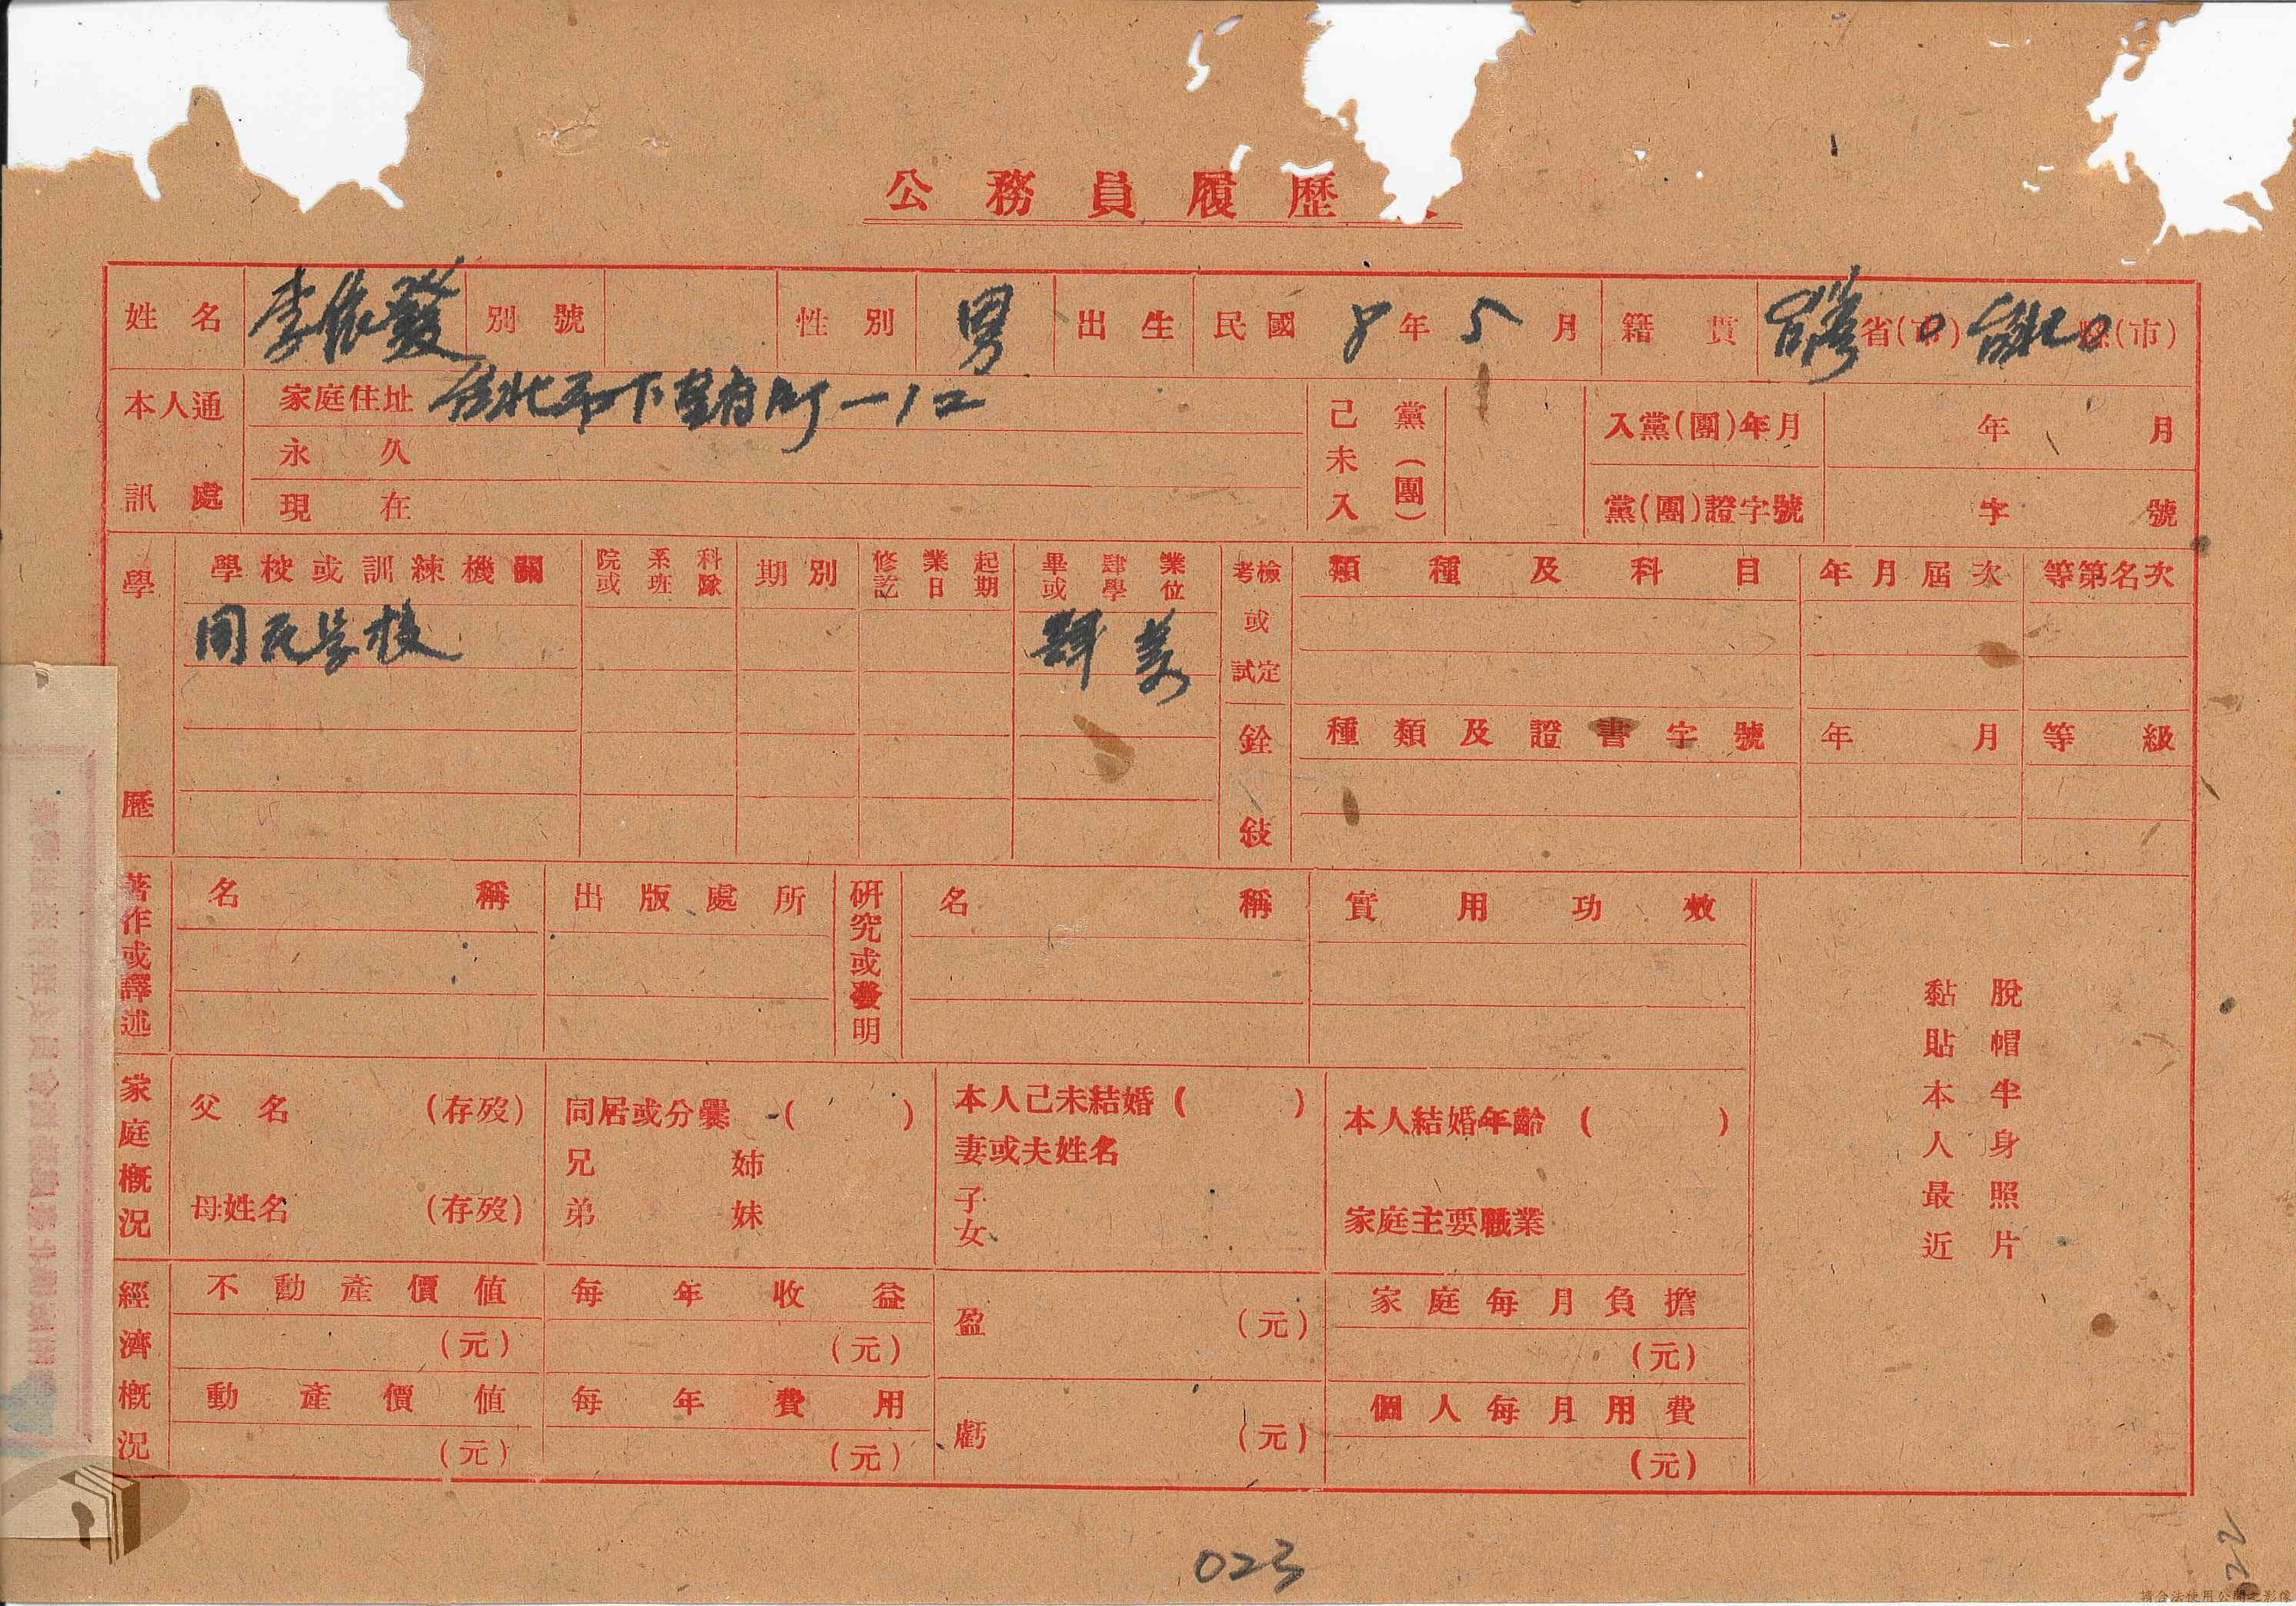 公務員履歷
姓名 李依發 別號 性別 男 出生 民國 8年5月 籍貫 台灣省(市) 台北縣(市)
本人通訊處 家庭住址 台北市下奎府町一ノ二
永久
現在
已未入黨(團) 入黨(團)年月 年 月
黨(團)證字號 字 號
學歷 學校或訓練機關 院系科或班隊 期別 修業起訖日期 畢肄業或學位 考檢或試定 類種及科目 年月屆次 等第名次
國民學校 畢業
銓敍 種類及證書字號 年月 等級
著作或譯述 名稱 出版處所 研究或發明 名稱 實用功效
脫帽半身照片
黏貼本人最近
家庭概況 父名 (存歿) 同居或分爨 ( ) 本人已未結婚 ( ) 本人結婚年齡 ( )
兄 姉 妻或夫姓名
母姓名 (存歿) 弟 妹 子女 家庭主要職業
經濟概況 不動產價值 每年收益 盈 (元) 家庭每月負擔
(元) (元) (元)
動產價值 每年費用 虧 (元) 個人每月用費
(元) (元) (元)
023
22
請合法使用公開之影像